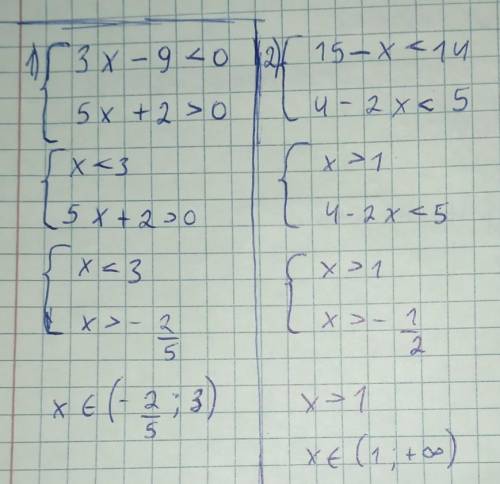 1) { 3x - 9 < 0
5x + 2 > 0
{ x < 3
5x + 2 > 0
{ x < 3
x > - 2/5
x ∈ (- 2/5 ; 3)
2) { 15 - x < 14
4 - 2x < 5
{ x > 1
4 - 2x < 5
{ x > 1
x > - 1/2
x > 1
x ∈ (1 ; +∞)